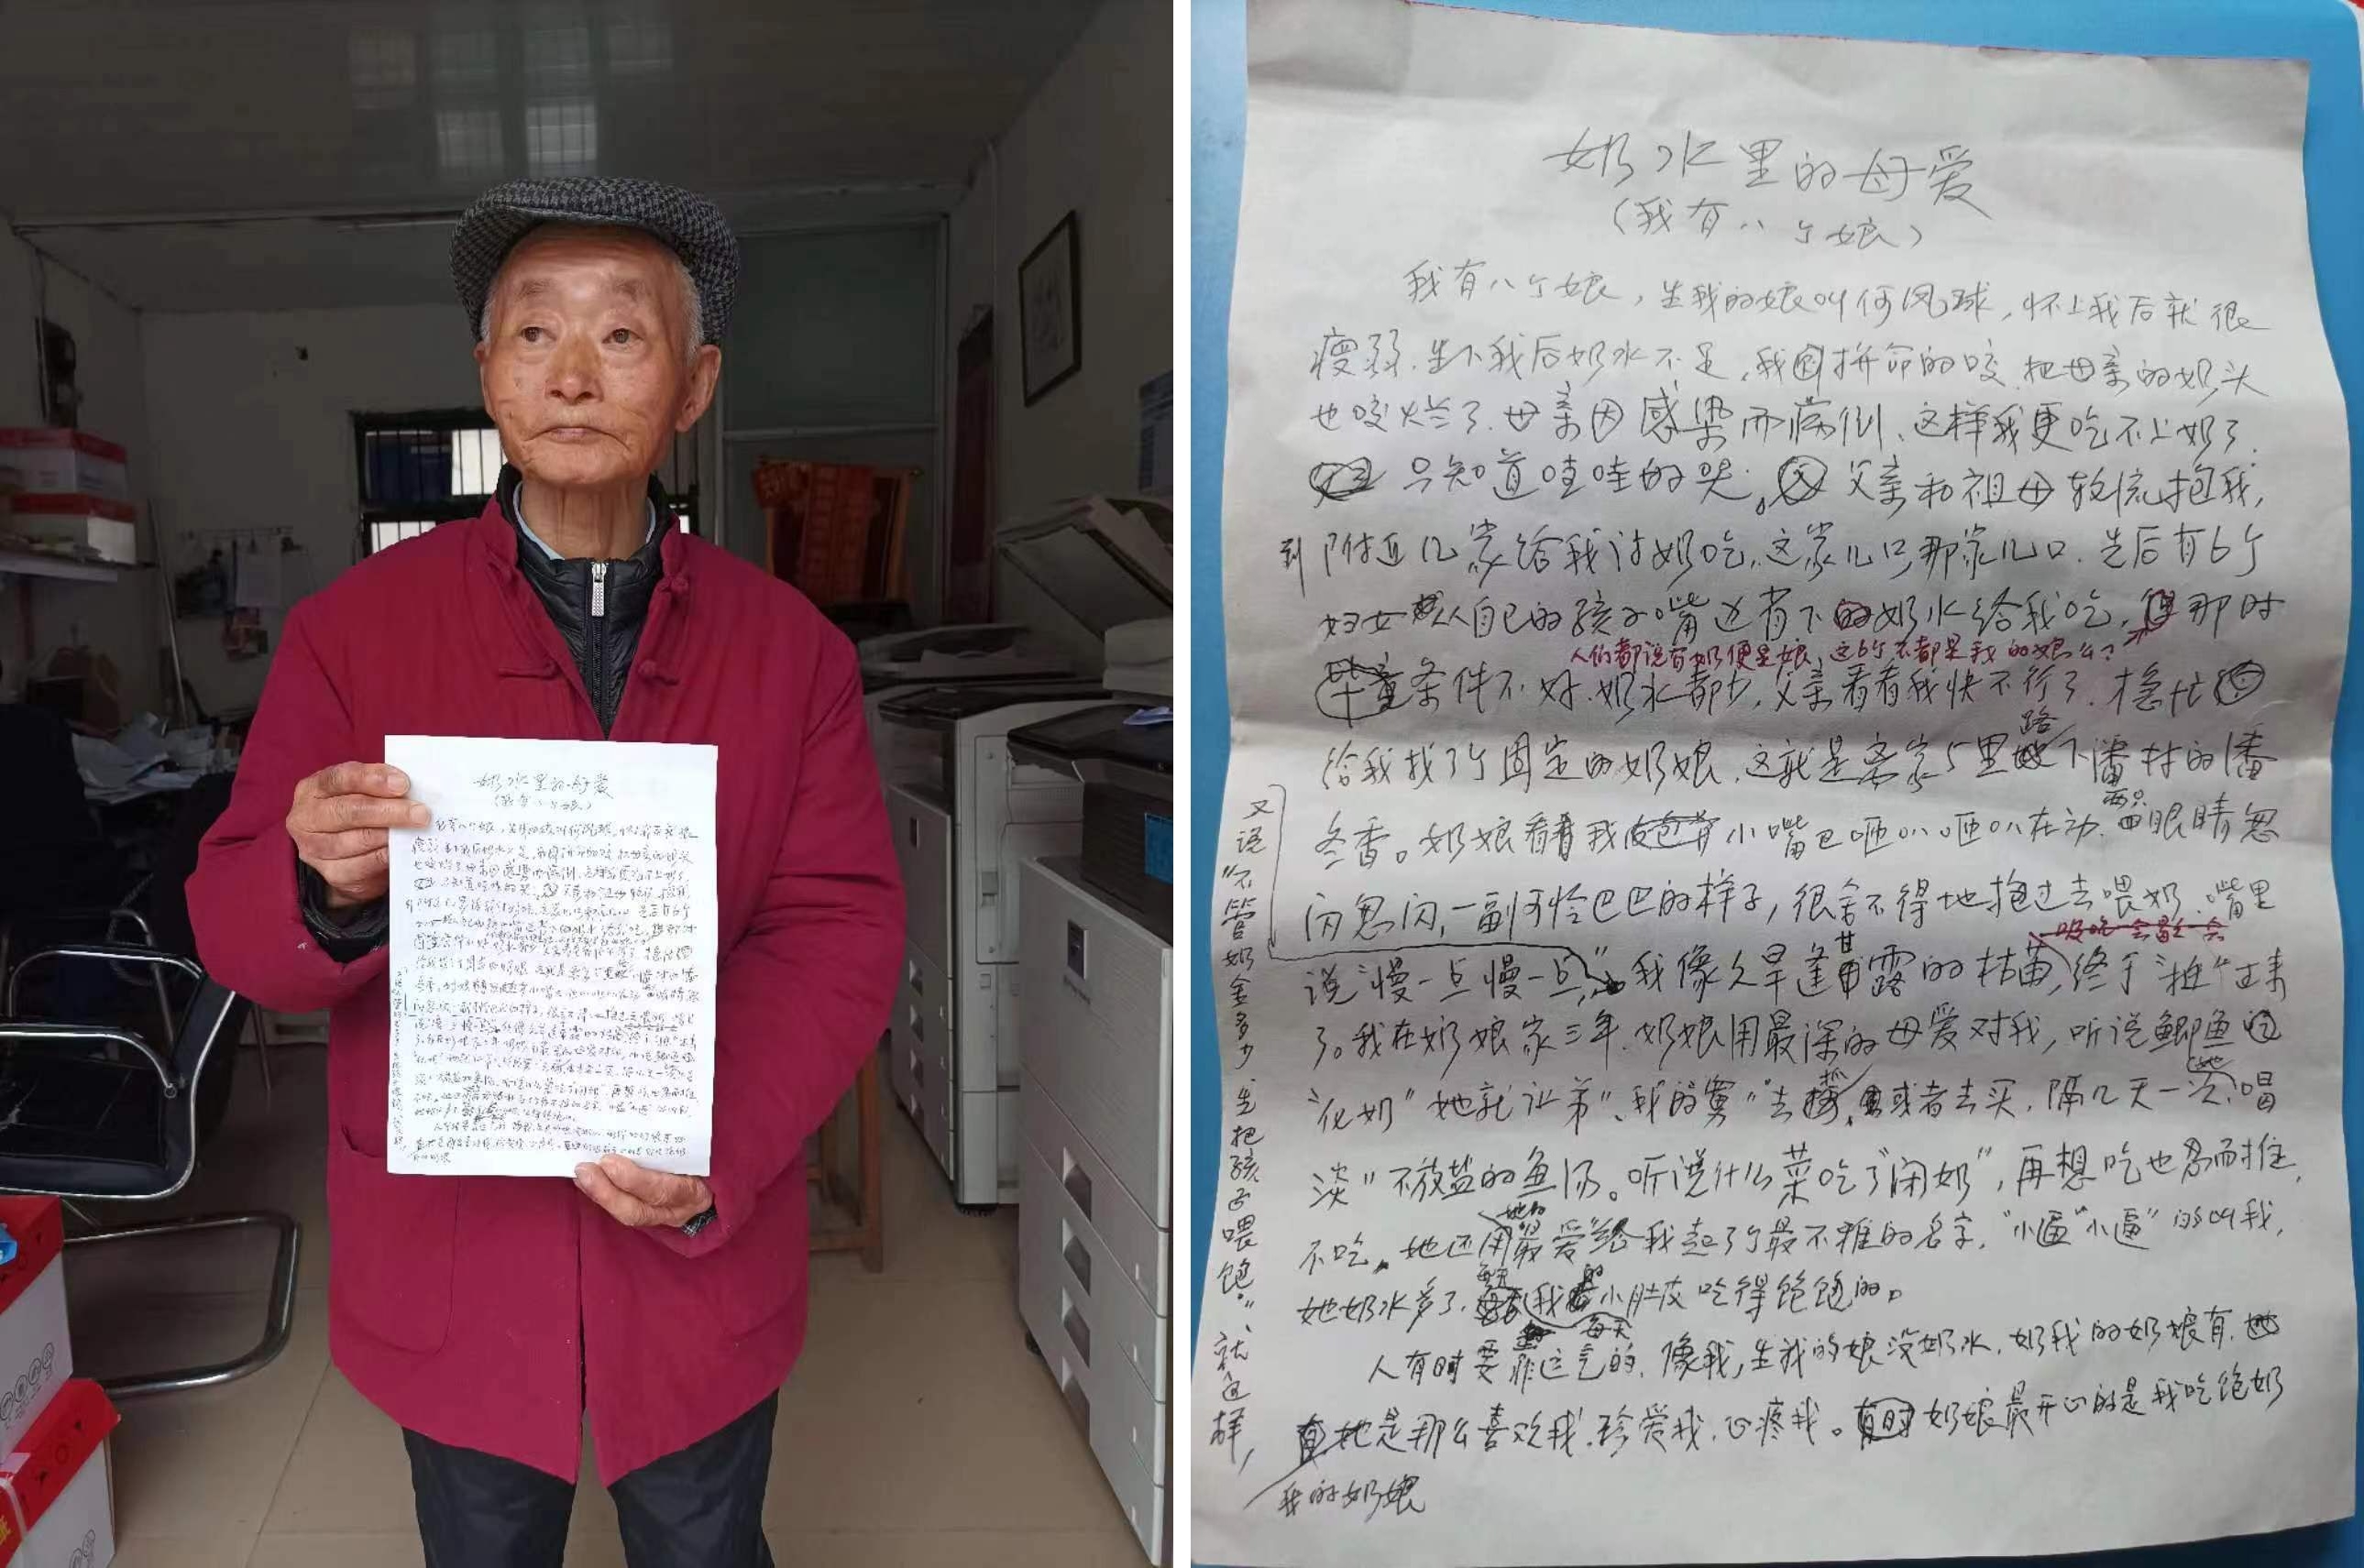 奶水里的母爱
（我有八个娘）
我有八个娘，生我的娘叫何凤球，怀上我后就很
瘦弱.生下我后奶水不足，我拼命的咬.把母亲的奶头
也咬烂了.母亲因感染而病倒、这样我更吃不上奶了.
只知道哇哇的哭。父亲和祖母轮流抱我，
到附近几家给我讨奶吃，这家几口，那家几口.先后有6个
妇女从自己的孩子嘴边省下的奶水给我吃，那时
人们都说有奶便是娘，这6个不都是我的娘么？
条件不好.奶水都少，父亲看看我快不行了.急忙
给我找了个固定的奶娘.这就是离家5里路下潘村的潘
冬香。奶娘看着我小嘴巴咂叭咂叭在动.两只眼睛忽
闪忽闪，一副可怜巴巴的样子，很舍不得地抱过去喂奶.嘴里
说“慢一点慢一点”，我像久旱逢甘露的枯苗，终于“挺”过来
又说“不管奶金多少先把孩子喂饱.”就这样，
了。我在奶娘家三年.奶娘用最深的母爱对我，听说鲫鱼
“化奶”她就让弟“我的舅”去抓，或者去买.隔几天一次喝
淡“不放盐的鱼汤。听说什么菜吃了“闭奶”，再想吃也忍而拒
不吃。她还用她的最爱给我起了个最不雅的名字，“小逼”“小逼”的叫我，
她奶水多了.我的小肚皮每天吃得饱饱的。
人有时要靠运气的.像我，生我的娘没奶水.奶我的奶娘有.
她是那么喜欢我.珍爱我.心疼我。奶娘最开心的是我吃饱奶
我的奶娘